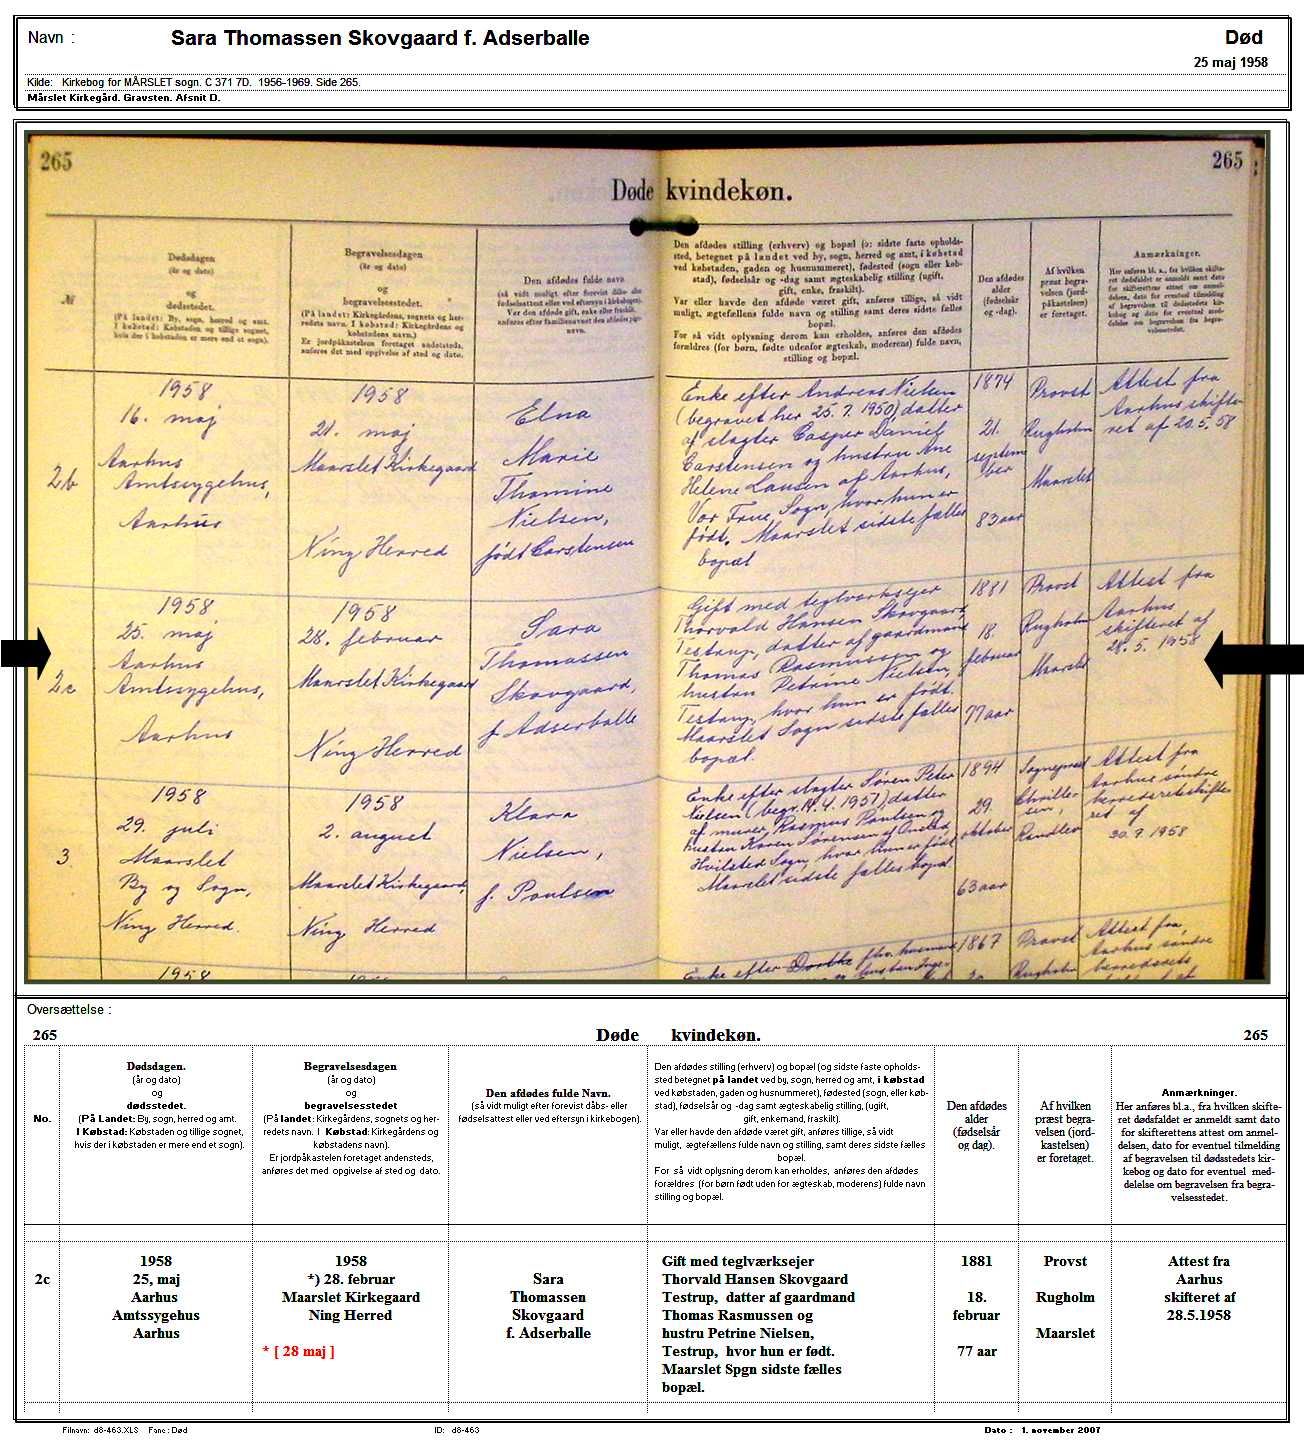 Navn : Sara Thomassen Skovgaard f. Adserballe Død
25 maj 1958
Kilde: Kirkebog for MÅRSLET sogn. C 371 7D. 1956-1969. Side 265.
Mårslet Kirkegård. Gravsten. Afsnit D.
265 265
Døde kvindekøn.
№
Dødsdagen
(år og dato)
og
dødsstedet.
(På landet: By, sogn, herred og amt.
I købstad: Købstaden og tillige sognet,
hvis der i købstaden er mere end et sogn).
Begravelsesdagen
(år og dato)
og
begravelsesstedet.
(På landet: Kirkegårdens, sognets og her-
redets navn. I købstad: Kirkegårdens og
købstadens navn.)
Er jordpåkastelsen foretaget andetsteds,
anføres det med opgivelse af sted og dato.
Den afdødes fulde navn
(så vidt muligt efter forevist dåbs- eller
fødselsattest eller ved eftersyn i kirkebogen).
Var den afdøde gift, enke eller fraskilt,
anføres efter familienavnet den afdødes pige-
navn.
Den afdødes stilling (erhverv) og bopæl (ɔ: sidste faste opholds-
sted, betegnet på landet ved by, sogn, herred og amt, i købstad
ved købstaden, gaden og husnummeret), fødested (sogn eller køb-
stad), fødselsår og -dag samt ægteskabelig stilling (ugift,
gift, enke, fraskilt).
Var eller havde den afdøde været gift, anføres tillige, så vidt
muligt, ægtefællens fulde navn og stilling samt deres sidste fælles
bopæl.
For så vidt oplysning derom kan erholdes, anføres den afdødes
forældres (for børn, fødte udenfor ægteskab, moderens) fulde navn,
stilling og bopæl.
Den afdødes
alder
(fødselsår
og -dag).
Af hvilken
præst begra-
velsen (jord-
påkastelsen)
er foretaget.
Anmærkninger.
Her anføres bl. a., fra hvilken skifte-
ret dødsfaldet er anmeldt samt dato
for skifterettens attest om anmel-
delsen, dato for eventuel tilmelding
af begravelsen til dødsstedets kir-
kebog og dato for eventuel med-
delelse om begravelsen fra begra-
velsesstedet.
2b
1958
16. maj
Aarhus
Amtssygehus,
Aarhus
1958
21. maj
Maarslet Kirkegaard
Ning Herred
Elna
Marie
Thomine
Nielsen,
født Carstensen
Enke efter Andreas Nielsen
(begravet her 25.7.1950) datter
af slagter Casper Daniel
Carstensen og hustru Ane
Helene Lausen af Aarhus,
Vor Frue Sogn, hvor hun er
født. Maarslet sidste fælles
bopæl
1874
21.
septem
ber
83 aar
Provst
Rugholm
Maarslet
Attest fra
Aarhus skifte
ret af 20.5.58
2c
1958
25. maj
Aarhus
Amtssygehus,
Aarhus
1958
28. februar
Maarslet Kirkegaard
Ning Herred
Sara
Thomassen
Skovgaard,
f. Adserballe
Gift med teglværksejer
Thorvald Hansen Skovgaard,
Testrup, datter af gaardmand
Thomas Rasmussen og
hustru Petrine Nielsen,
Testrup, hvor hun er født.
Maarslet Sogn sidste fælles
bopæl.
1881
18.
februar
77 aar
Provst
Rugholm
Maarslet
Attest fra
Aarhus
skifteret af
28.5.1958
3
1958
29. juli
Maarslet
By og Sogn,
Ning Herred.
1958
2. august
Maarslet Kirkegaard,
Ning Herred
Klara
Nielsen,
f. Poulsen
Enke efter slagter Søren Peter
Nielsen (begr. 14.4.1957), datter
af murer Rasmus Poulsen og
hustru Karen Sørensen af Onsted,
Hvilsted Sogn, hvor hun er født
Maarslet sidste fælles bopæl
1894
29.
oktober
63 aar
Sognepræst
Randlev
Attest fra
Aarhus søndre
herredsretsskifte
ret af
30.7.1958
1958
Enke efter
1867
Provst
Rugholm
Attest fra
Aarhus søndre
herredsrets
Oversættelse :
265 Døde kvindekøn. 265
No.
Dødsdagen.
(år og dato)
og
dødsstedet.
(På Landet: By, sogn, herred og amt.
I Købstad: Købstaden og tillige sognet,
hvis der i købstaden er mere end et sogn).
Begravelsesdagen
(år og dato)
og
begravelsesstedet
(På landet: Kirkegårdens, sognets og her-
redets navn. I Købstad: Kirkegårdens og
købstadens navn).
Er jordpåkastelen foretaget andensteds,
anføres det med opgivelse af sted og dato.
Den afdødes fulde Navn.
(så vidt muligt efter forevist dåbs- eller
fødselsattest eller ved eftersyn i kirkebogen).
Den afdødes stilling (erhverv) og bopæl (og sidste faste opholds-
sted betegnet på landet ved by, sogn, herred og amt, i købstad
ved købstaden, gaden og husnummeret), fødested (sogn, eller køb-
stad), fødselsår og -dag samt ægteskabelig stilling, (ugift,
gift, enkemand, fraskilt).
Var eller havde den afdøde været gift, anføres tillige, så vidt
muligt, ægtefællens fulde navn og stilling, samt deres sidste fælles
bopæl.
For så vidt oplysning derom kan erholdes, anføres den afdødes
forældres (for børn født uden for ægteskab, moderens) fulde navn
stilling og bopæl.
Den afdødes
alder
(fødselsår
og dag).
Af hvilken
præst begra-
velsen (jord-
kastelsen)
er foretaget.
Anmærkninger.
Her anføres bl.a., fra hvilken skifte-
ret dødsfaldet er anmeldt samt dato
for skifterettens attest om anmel-
delsen, dato for eventuel tilmelding
af begravelsen til dødsstedets kir-
kebog og dato for eventuel med-
delelse om begravelsen fra begra-
velsesstedet.
2c
1958
25, maj
Aarhus
Amtssygehus
Aarhus
1958
*) 28. februar
Maarslet Kirkegaard
Ning Herred
* [ 28 maj ]
Sara
Thomassen
Skovgaard
f. Adserballe
Gift med teglværksejer
Thorvald Hansen Skovgaard
Testrup, datter af gaardmand
Thomas Rasmussen og
hustru Petrine Nielsen,
Testrup, hvor hun er født.
Maarslet Spgn sidste fælles
bopæl.
1881
18.
februar
77 aar
Provst
Rugholm
Maarslet
Attest fra
Aarhus
skifteret af
28.5.1958
Filnavn: d8-463.XLS Fane: Død ID: d8-463 Dato : 1. november 2007